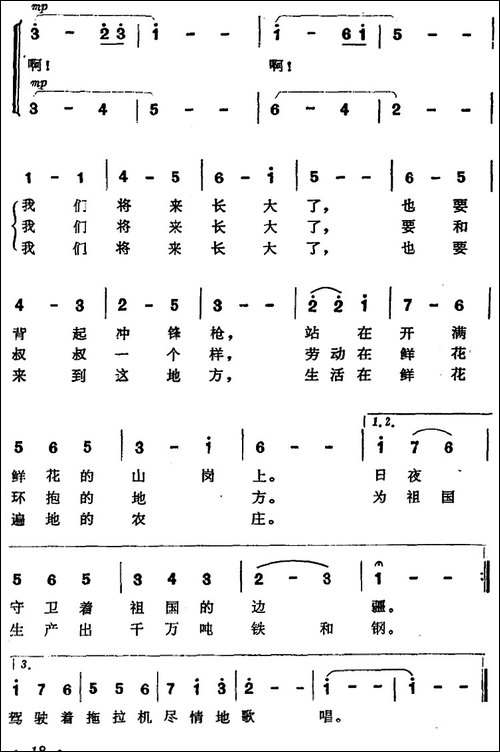 mp
3 - 2 3 | 1 - - | 1 - 6 1 | 5 - - |
啊! 啊!
mp
3 - 4 | 5 - - | 6 - 4 | 2 - - |
1 - 1 | 4 - 5 | 6 - 1 | 5 - - | 6 - 5
我们将来长大了,也要
我们将来长大了,要和
我们将来长大了,也要
4 - 3 | 2 - 5 | 3 - - | 2 2 1 | 7 - 6
背起冲锋枪,站在开满
叔叔一个样,劳动在鲜花
来到这地方,生活在鲜花
1.2.
5 6 5 | 3 - 1 | 6 - - | 1 7 6
鲜花的山岗上。日夜
环抱的地方。为祖国
遍地的农庄。
5 6 5 | 3 4 3 | 2 - 3 | 1 - :||
守卫着祖国的边疆。
生产出千万吨铁和钢。
3.
1 7 6 | 5 5 6 | 7 1 3 | 2 - - | 1 - - | 1 - - ||
驾驶着拖拉机尽情地歌唱。